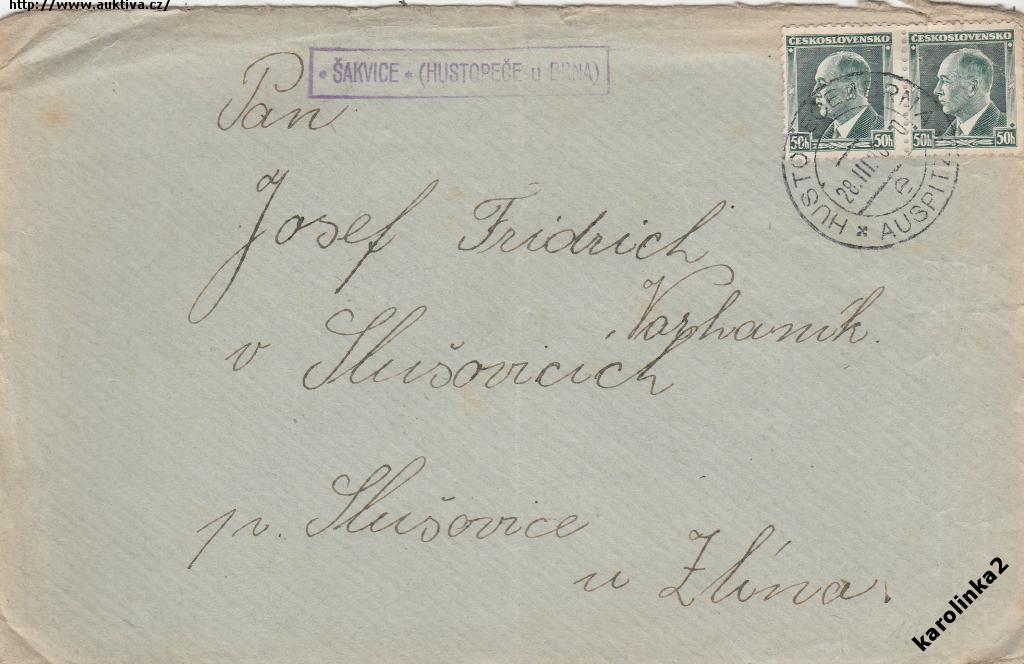 http://www.auktiva.cz/
• ŠAKVICE • (HUSTOPEČE u BRNA)
ČESKOSLOVENSKO ČESKOSLOVENSKO
50h 50h 50h 50h
HUSTOPEČE U BRNA
28.III.
e
AUSPITZ
Pan
Josef Fridrich
v Slušovicích
p. Slušovice
u Zlína.
karolinka2